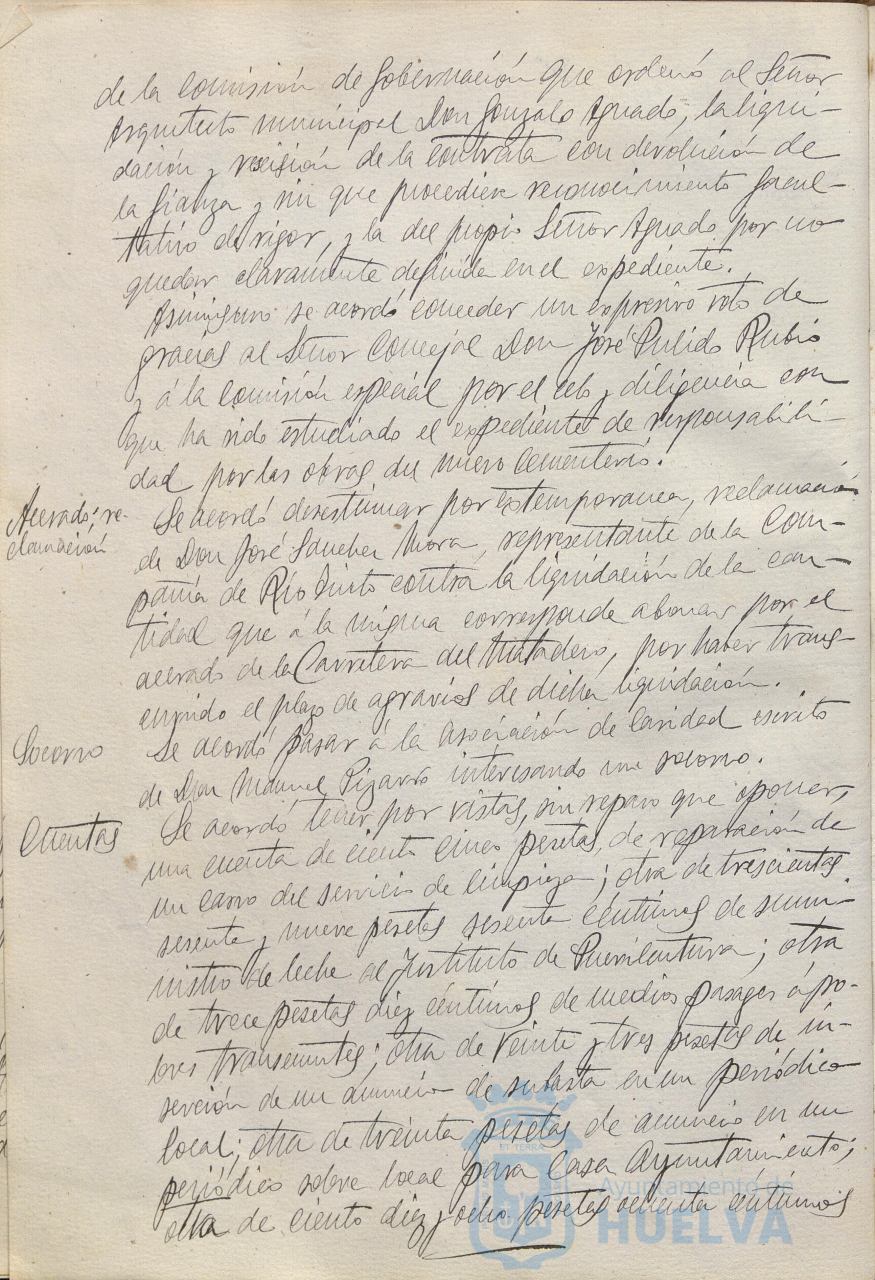 de la Comisión de Gobernación que ordenó al Señor
Arquitecto municipal Don Gonzalo Aguado, la liqui-
dación y rescisión de la contrata con devolución de
la fianza y sin que procediera reconocimiento facul-
tativo de rigor, y la del propio Señor Aguado por no
quedar claramente definida en el expediente.
Asimismo se acordó conceder un expresivo voto de
gracias al Señor Concejal Don José Pulido Rubio
y á la comisión especial por el celo y diligencia con
que ha sido estudiado el expediente de responsabili-
dad por las obras del nuevo Cementerio.
Acerado; re-
clamación
Se acordó desestimar por extemporanea, reclamación
de Don José Sánchez Mora, representante de la Com-
pañía de Río Tinto contra la liquidación de la can-
tidad que á la misma corresponde abonar por el
acerado de la Carretera del Matadero, por haber trans-
currido el plazo de agravios de dicha liquidación.
Socorro
Se acordó pasar á la Asociación de Caridad escrito
de Don Manuel Pizarro interesando un socorro.
Cuentas
Se acordó tener por vistas, sin reparo que oponer,
una cuenta de ciento cinco pesetas, de reparación de
un carro del servicio de limpieza; otra de trescientas
sesenta y nueve pesetas sesenta céntimos de sumi-
nistro de leche al Instituto de Puericultura; otra
de trece pesetas diez céntimos de medios pasages á po-
bres transeuntes; otra de veinte y tres pesetas de in-
serción de un anuncio de subasta en un periódico
local; otra de treinta pesetas de anuncio en un
periódico sobre local para Casa Ayuntamiento;
otra de ciento diez y ocho pesetas ochenta céntimos
Ayuntamiento de
HUELVA